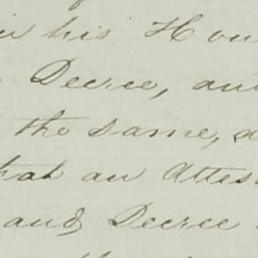 in his Hon
Decree, and
the same, a
that an Attes
and Decree